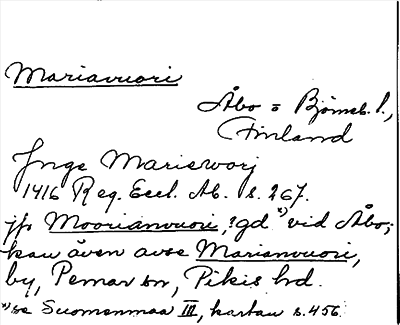 Mariavuori
Åbo o Björneb. l.,
Finland
Inge Marieworj
1416 Reg. Eccl. Ab. s. 267.
jfr Moorianvuori, ?gd x) vid Åbo;
kan även avse Marianvuori,
by, Pemar sn, Pikis hd.
x) se Suomenmaa III, kartan s. 456.